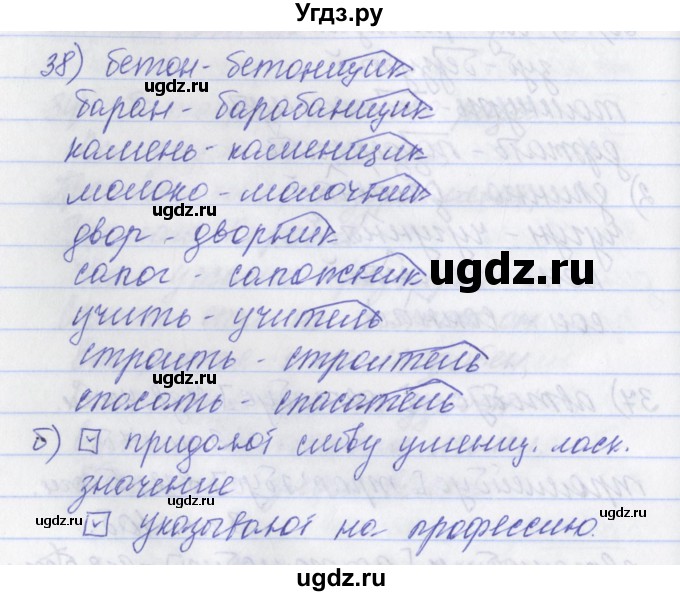 Угдз.ру
38) бетон - бетонщик
баран - барабанщик
камень - каменщик
молоко - молочник
ugdz.ru ugdz.ru
двор - дворник
сапог - сапожник
ugdz.ru
учить - учитель
строить - строитель
ugdz.ru ugdz.ru
спасать - спасатель
б) придают слову уменш. ласк.
значение
ugdz.ru ugdz.ru
указывают на профессию.
ugdz.ru